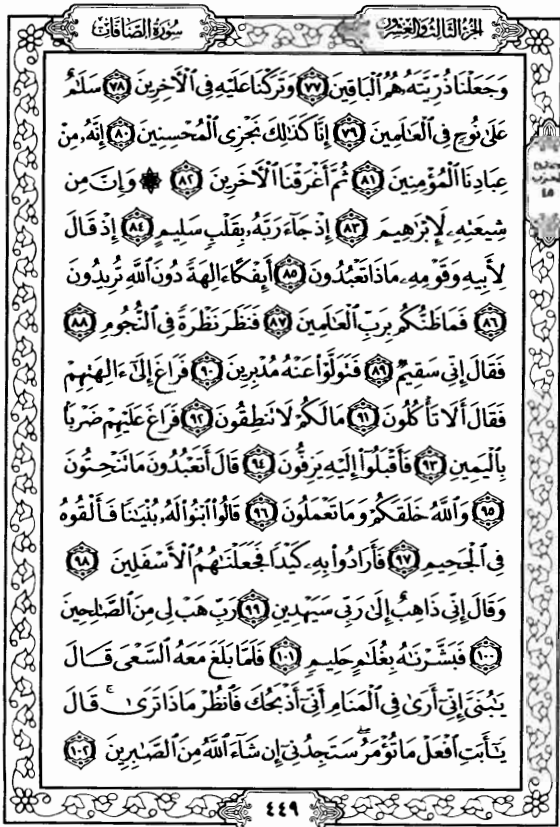 الجزء الثالث والعشرون
سورة الصافات
وَجَعَلْنَا ذُرِّيَّتَهُۥ هُمُ ٱلْبَاقِينَ ٧٧ وَتَرَكْنَا عَلَيْهِ فِى ٱلْأَخِرِينَ ٧٨ سَلَٰمٌ
عَلَىٰ نُوحٍ فِى ٱلْعَٰلَمِينَ ٧٩ إِنَّا كَذَٰلِكَ نَجْزِى ٱلْمُحْسِنِينَ ٨٠ إِنَّهُۥ مِنْ
عِبَادِنَا ٱلْمُؤْمِنِينَ ٨١ ثُمَّ أَغْرَقْنَا ٱلْأَخَرِينَ ٨٢ ۞ وَإِنَّ مِن
شِيعَتِهِۦ لَإِبْرَٰهِيمَ ٨٣ إِذْ جَآءَ رَبَّهُۥ بِقَلْبٍ سَلِيمٍ ٨٤ إِذْ قَالَ
لِأَبِيهِ وَقَوْمِهِۦ مَاذَا تَعْبُدُونَ ٨٥ أَئِفْكًا ءَالِهَةً دُونَ ٱللَّهِ تُرِيدُونَ
٨٦ فَمَا ظَنُّكُم بِرَبِّ ٱلْعَٰلَمِينَ ٨٧ فَنَظَرَ نَظْرَةً فِى ٱلنُّجُومِ ٨٨
فَقَالَ إِنِّى سَقِيمٌ ٨٩ فَتَوَلَّوْا۟ عَنْهُ مُدْبِرِينَ ٩٠ فَرَاغَ إِلَىٰٓ ءَالِهَتِهِمْ
فَقَالَ أَلَا تَأْكُلُونَ ٩١ مَا لَكُمْ لَا تَنطِقُونَ ٩٢ فَرَاغَ عَلَيْهِمْ ضَرْبًۢا
بِٱلْيَمِينِ ٩٣ فَأَقْبَلُوٓا۟ إِلَيْهِ يَزِفُّونَ ٩٤ قَالَ أَتَعْبُدُونَ مَا تَنْحِتُونَ
٩٥ وَٱللَّهُ خَلَقَكُمْ وَمَا تَعْمَلُونَ ٩٦ قَالُوا۟ ٱبْنُوا۟ لَهُۥ بُنْيَٰنًا فَأَلْقُوهُ
فِى ٱلْجَحِيمِ ٩٧ فَأَرَادُوا۟ بِهِۦ كَيْدًا فَجَعَلْنَٰهُمُ ٱلْأَسْفَلِينَ ٩٨
وَقَالَ إِنِّى ذَاهِبٌ إِلَىٰ رَبِّى سَيَهْدِينِ ٩٩ رَبِّ هَبْ لِى مِنَ ٱلصَّٰلِحِينَ
١٠٠ فَبَشَّرْنَٰهُ بِغُلَٰمٍ حَلِيمٍ ١٠١ فَلَمَّا بَلَغَ مَعَهُ ٱلسَّعْىَ قَالَ
يَٰبُنَىَّ إِنِّىٓ أَرَىٰ فِى ٱلْمَنَامِ أَنِّىٓ أَذْبَحُكَ فَٱنظُرْ مَاذَا تَرَىٰ ۚ قَالَ
يَٰٓأَبَتِ ٱفْعَلْ مَا تُؤْمَرُ ۖ سَتَجِدُنِىٓ إِن شَآءَ ٱللَّهُ مِنَ ٱلصَّٰبِرِينَ ١٠٢
٤٤٩